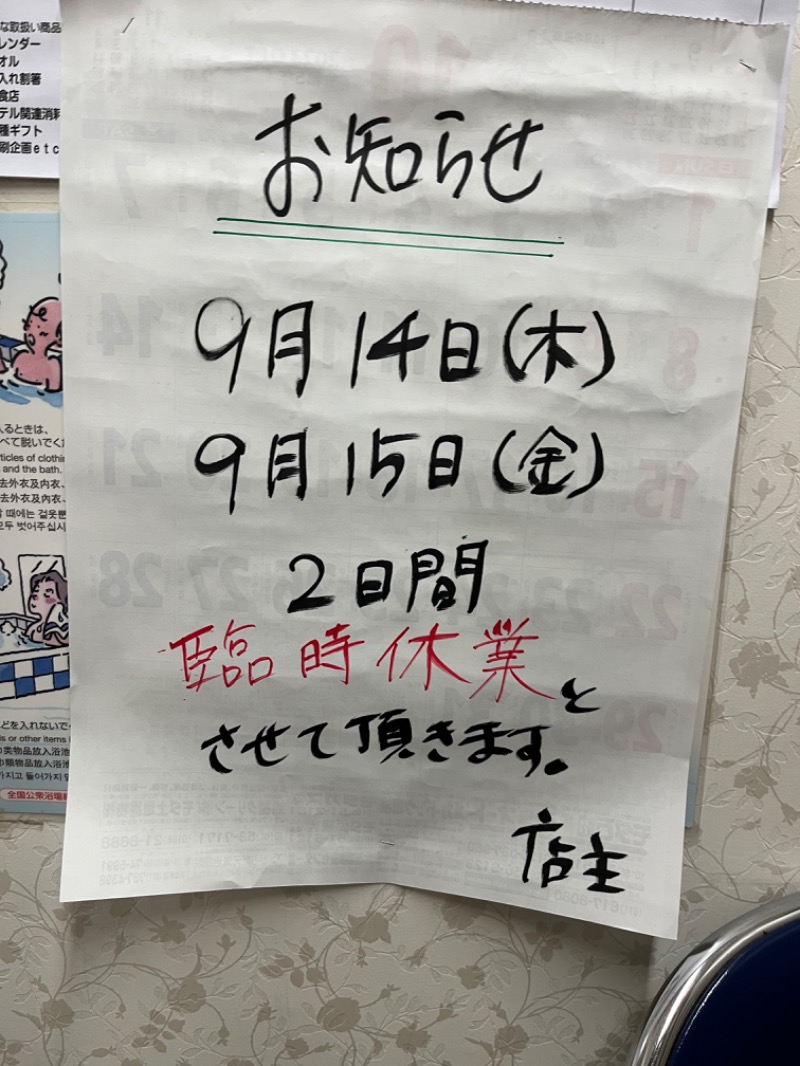 な取扱い商品
レンダー
オル
入れ割箸
食店
テル関連消耗
種ギフト
刷企画etc
お知らせ
9月14日(木)
9月15日(金)
2日間
臨時休業と
させて頂きます。
店主
入るときは、
べて脱いでくだ
ticles of clothin
and the bath.
去外衣及内衣、
去外衣及內衣、
때에는 겉옷뿐
모두 벗어주십시
どを入れないで
s or other items
类物品放入浴池
類物品放入浴池
가지고 들어가지
全国公衆浴場
10
1
7
8
14
15
21
22
27
28
29